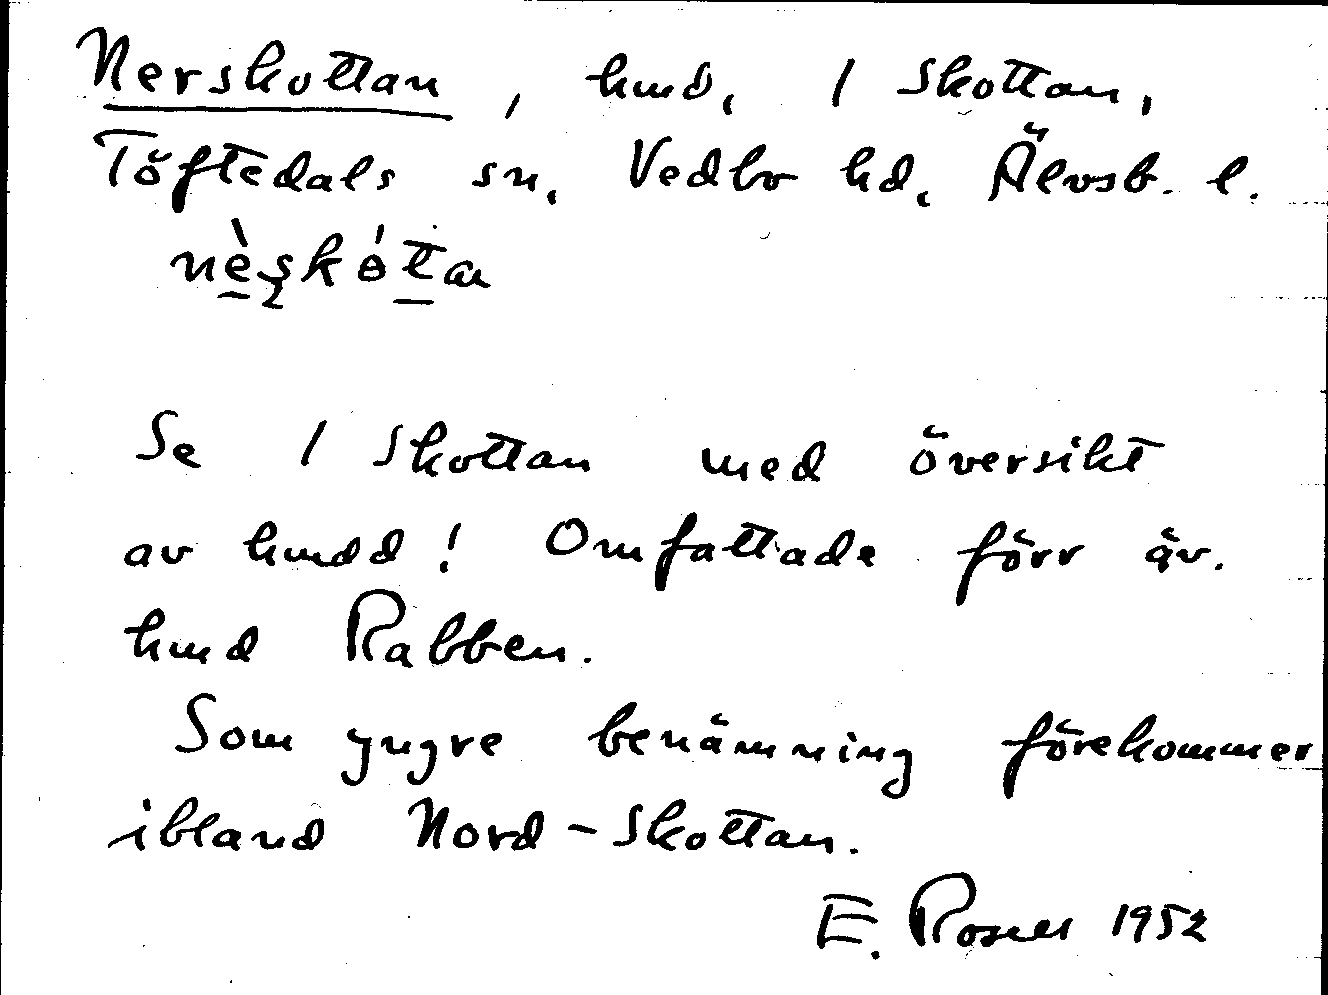 Nerskottan, hmd, 1 Skottan,
Töftedals sn, Vedbo hd, Älvsb. l.
Se 1 Skottan med översikt
av hmdd! Omfattade förr äv.
hmd Rabben.
Som yngre benämning förekommer
ibland Nord-Skottan.
E. Rosell 1952